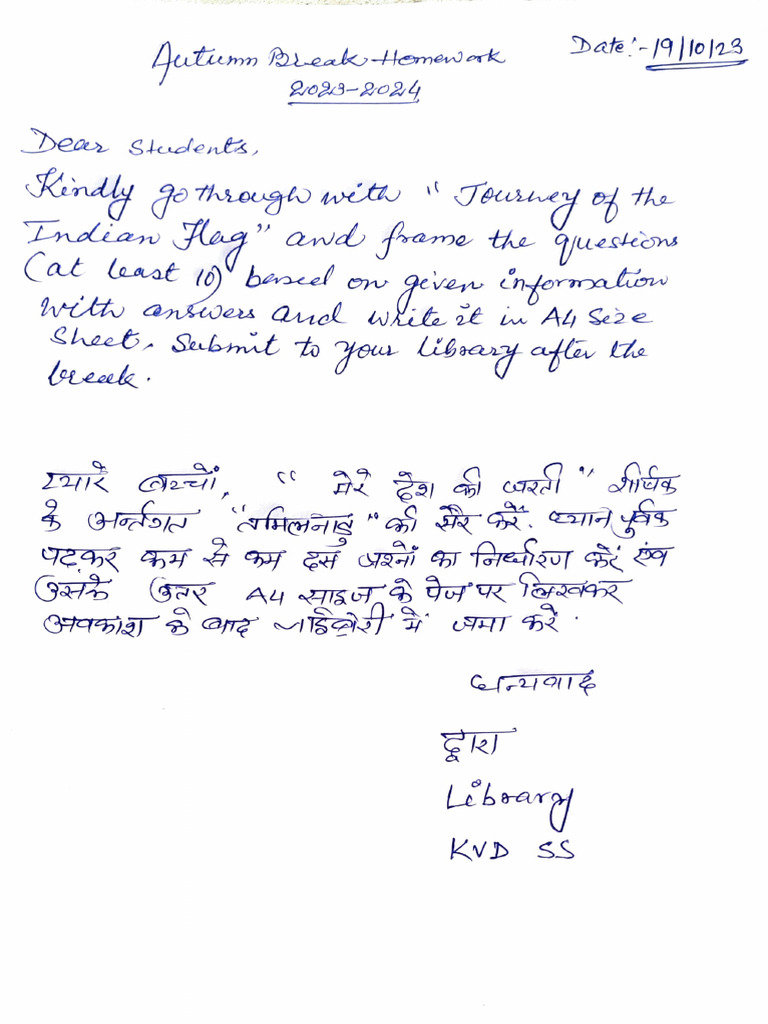 Autumn Break Homework
Date:- 19/10/23
2023-2024
Dear Students,
Kindly go through with " Journey of the
Indian Flag" and frame the questions
(at least 10) based on given information
with answers and write it in A4 Size
Sheet. Submit to your library after the
break.
प्यारे बच्चों, " मेरे देश की धरती " शीर्षक
के अर्न्तगत "तमिलनाडु" की सैर करें. ध्यान पूर्वक
पढ़कर कम से कम दस प्रश्नों का निर्धारण करें एंव
उसके उतर A4 साइज के पेज पर लिखकर
अवकाश के बाद लाईब्रेरी में जमा करें.
धन्यवाद
द्वारा
Library
KVD SS